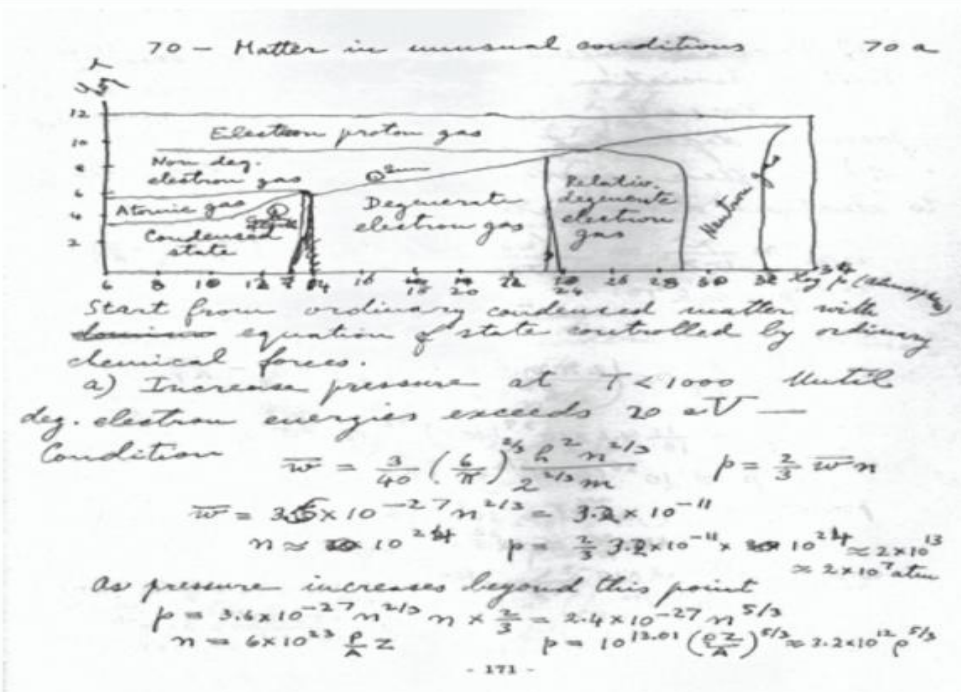 70 – Matter in unusual conditions 70 a
12
10
8
6
4
2
Electron proton gas
Non deg.
electron gas
Sun
Atomic gas
Condensed
state
Degenerate
electron gas
Relativ.
degenerate
electron
gas
Neutron
6 8 10 12 14 16 18 20 22 24 26 28 30 32 log p (atmospheres)
Start from ordinary condensed matter with
equation of state controlled by ordinary
chemical forces.
a) Increase pressure at T < 1000 Until
deg. electron energies exceeds 20 eV —
Condition w̅ = 3/40 (6/π)^{2/3} h² n^{2/3} / 2^{2/3} m p = 2/3 w̅ n
w̅ = 3.5 × 10^{-27} n^{2/3} = 3.2 × 10^{-11}
n ≈ 10^{24} p = 2/3 3.2 × 10^{-11} × 10^{24} ≈ 2 × 10^{13}
≈ 2 × 10^7 atm
As pressure increases beyond this point
p = 3.6 × 10^{-27} n^{2/3} n × 2/3 = 2.4 × 10^{-27} n^{5/3}
n = 6 × 10^{23} ρ/A Z p = 10^{13.01} (ρZ/A)^{5/3} ≈ 3.2 × 10^{12} ρ^{5/3}
- 171 -